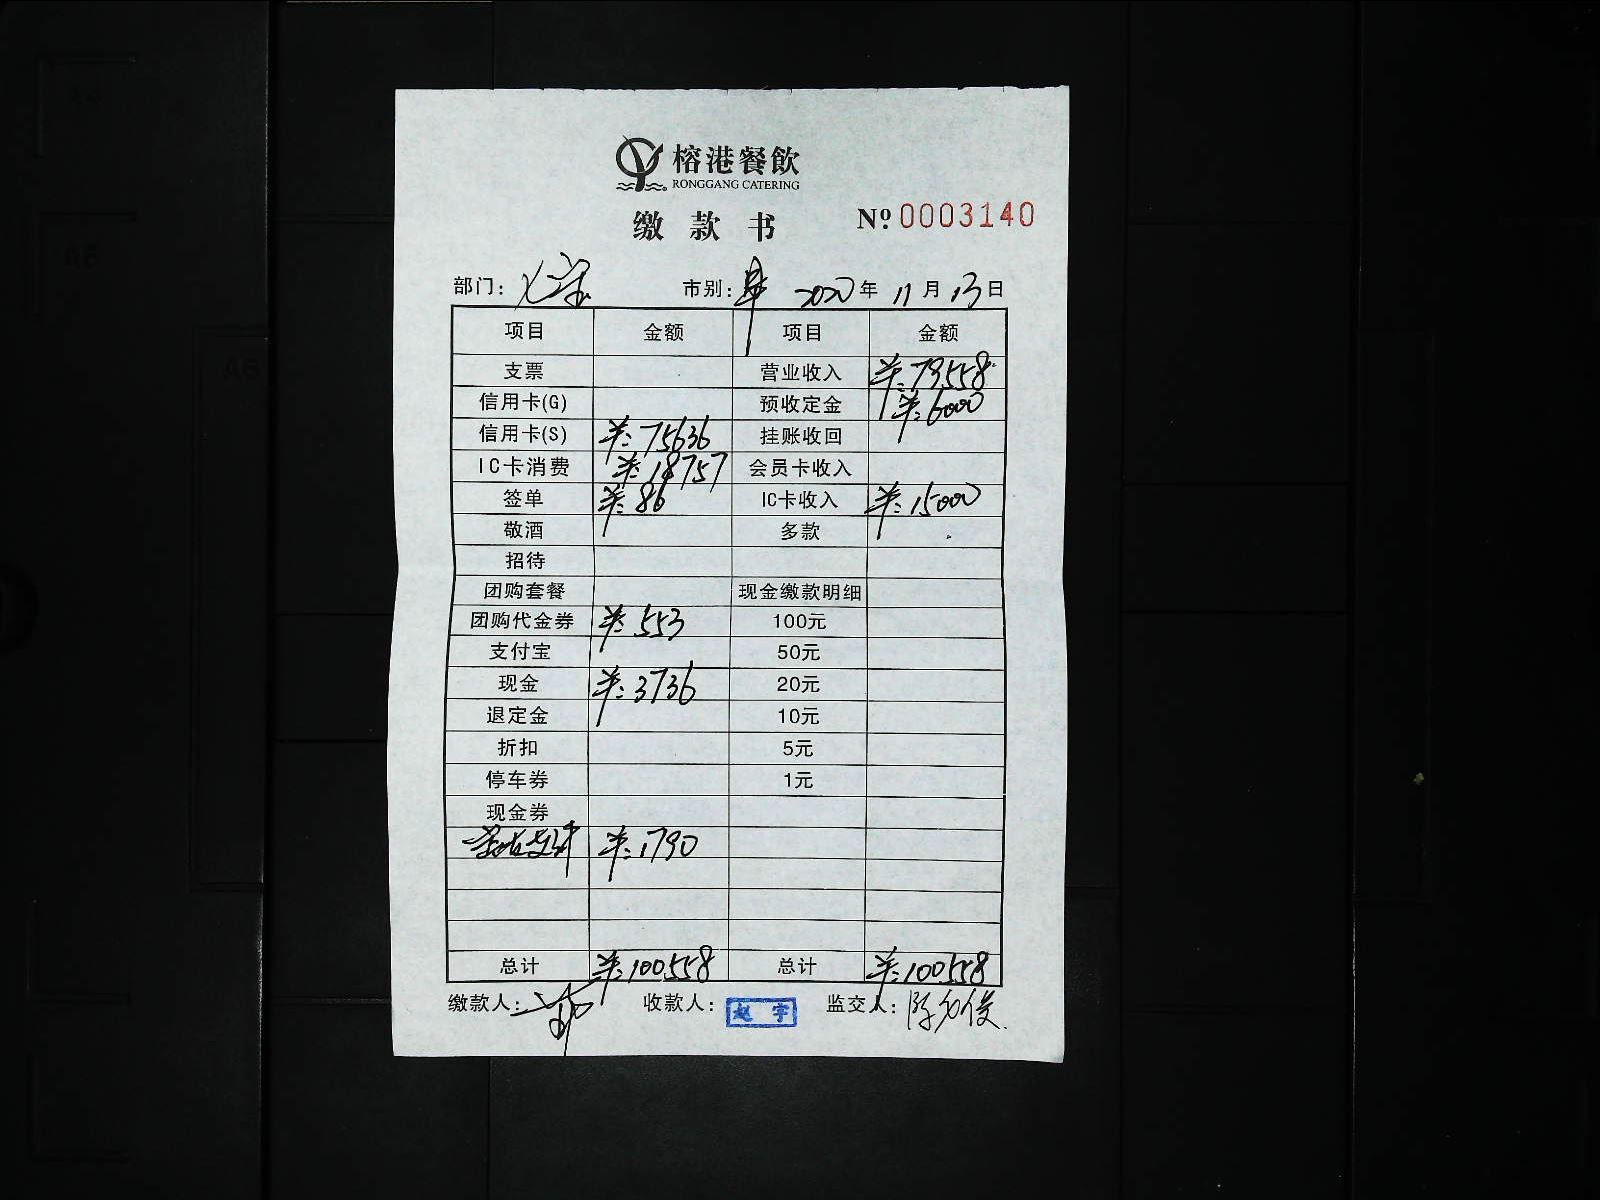 榕港餐飲
RONGGANG CATERING
缴款书
№ 0003140
部门： 市别： 2020年 11月 13日
项目 金额 项目 金额
支票 营业收入 ¥:79558
信用卡(G) 预收定金 ¥:6000
信用卡(S) ¥:75636 挂账收回
IC卡消费 ¥:18757 会员卡收入
签单 ¥:86 IC卡收入 ¥:15000
敬酒 多款
招待
团购套餐 现金缴款明细
团购代金券 ¥:553 100元
支付宝 50元
现金 ¥:3736 20元
退定金 10元
折扣 5元
停车券 1元
现金券
¥:1790
总计 ¥:100558 总计 ¥:100558
缴款人： 收款人：赵宇 监交人：